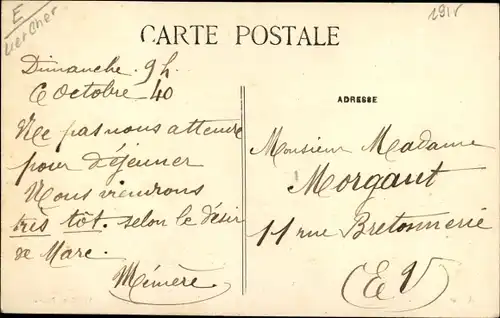 E
1915
CARTE POSTALE
Dimanche. 9h.
6 Octobre 40
Ne pas nous attendre
pour déjeuner
Nous viendrons
très tôt. selon le désir
de Marc.
Mémère.
ADRESSE
Monsieur Madame
Morgant
11 rue Bretonnerie
(E V)